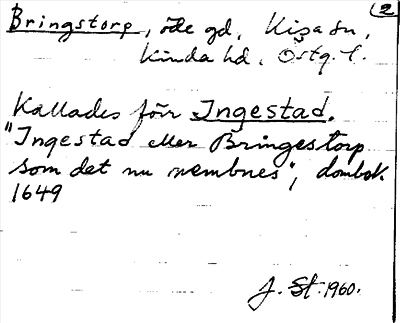 2
Bringstorp, öde gd, Kisa sn,
Kinda hd, Östg. l.
Kallades förr Ingestad.
"Ingestad eller Bringestorp
som det nu nembnes", dombok
1649
J. St. 1960.